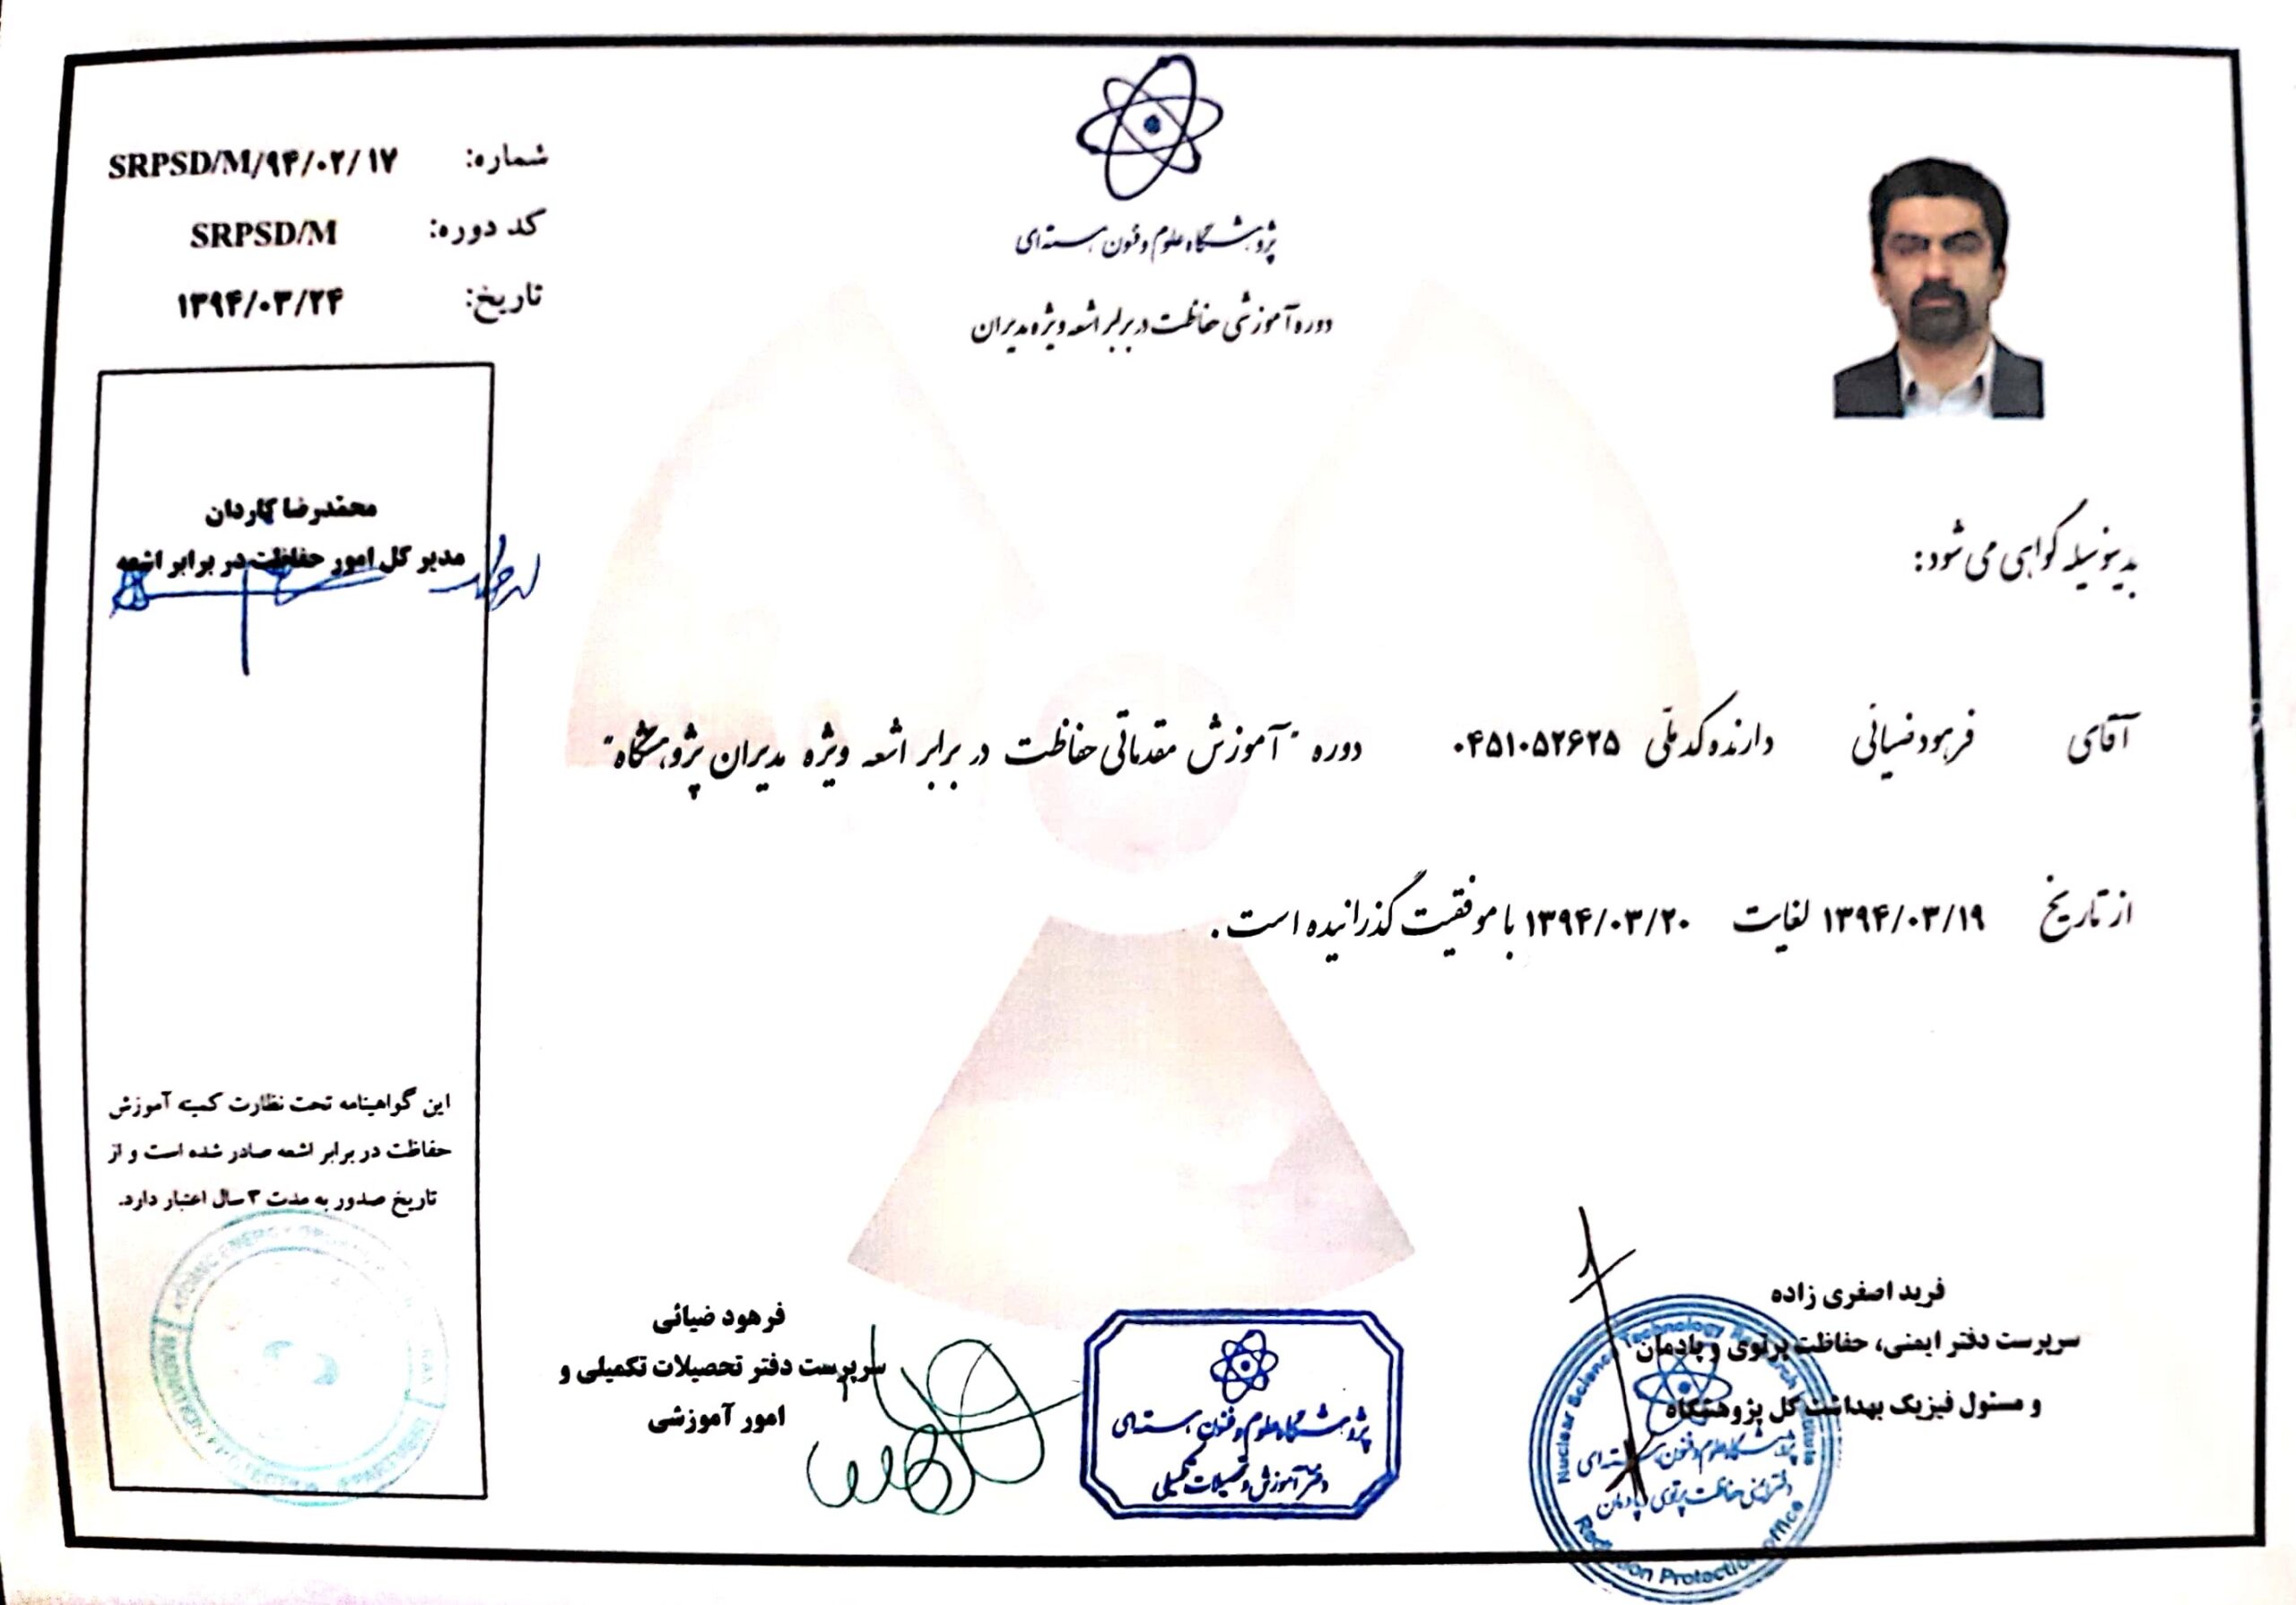 پژوهشگاه علوم و فنون هسته‌ای
دوره آموزشی حفاظت در برابر اشعه ویژه مدیران
شماره: SRPSD/M/۹۴/۰۲/۱۷
کد دوره: SRPSD/M
تاریخ: ۱۳۹۴/۰۳/۲۴
بدینوسیله گواهی می شود:
آقای فرهود ضیائی دارنده کد ملی ۰۴۵۱۰۵۲۶۲۵ دوره "آموزش مقدماتی حفاظت در برابر اشعه ویژه مدیران پژوهشگاه"
از تاریخ ۱۳۹۴/۰۳/۱۹ لغایت ۱۳۹۴/۰۳/۲۰ با موفقیت گذرانیده است.
محمدرضا کاردان
مدیر کل امور حفاظت در برابر اشعه
این گواهینامه تحت نظارت کمیته آموزش
حفاظت در برابر اشعه صادر شده است و از
تاریخ صدور به مدت ۳ سال اعتبار دارد.
ATOMIC ENERGY
فرید اصغری زاده
سرپرست دفتر ایمنی، حفاظت پرتوی و پادمان
و مسئول فیزیک بهداشت کل پژوهشگاه
Nuclear Science Technology Research Institute
پژوهشگاه علوم و فنون هسته‌ای
دفتر ایمنی حفاظت پرتوی و پادمان
Radiation Protection Office
پژوهشگاه علوم و فنون هسته‌ای
دفتر آموزش و تحصیلات تکمیلی
فرهود ضیائی
سرپرست دفتر تحصیلات تکمیلی و
امور آموزشی